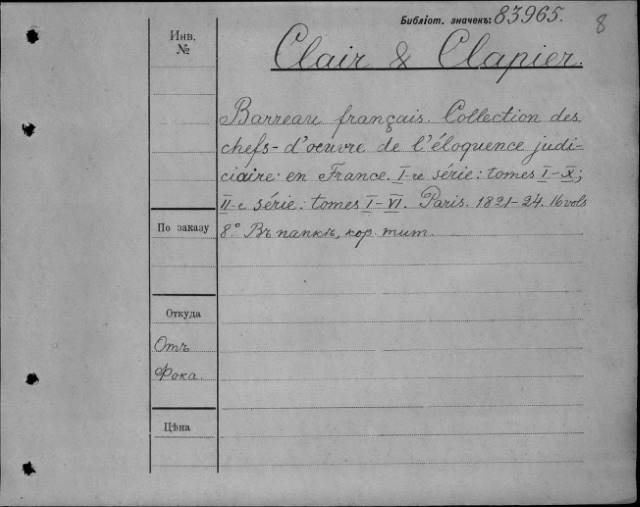 Библіот. значекъ: 83965.
8
Инв.
№
Clair & Clapier.
Barreau français. Collection des
chefs-d'oeuvre de l'éloquence judi-
ciaire en France. I-re série: tomes I-X;
II-e série: tomes I-VI. Paris. 1821-24. 16 vols
По заказу
8.° Въ папкѣ, кор. тит.
Откуда
Отъ
Фока.
Цѣна